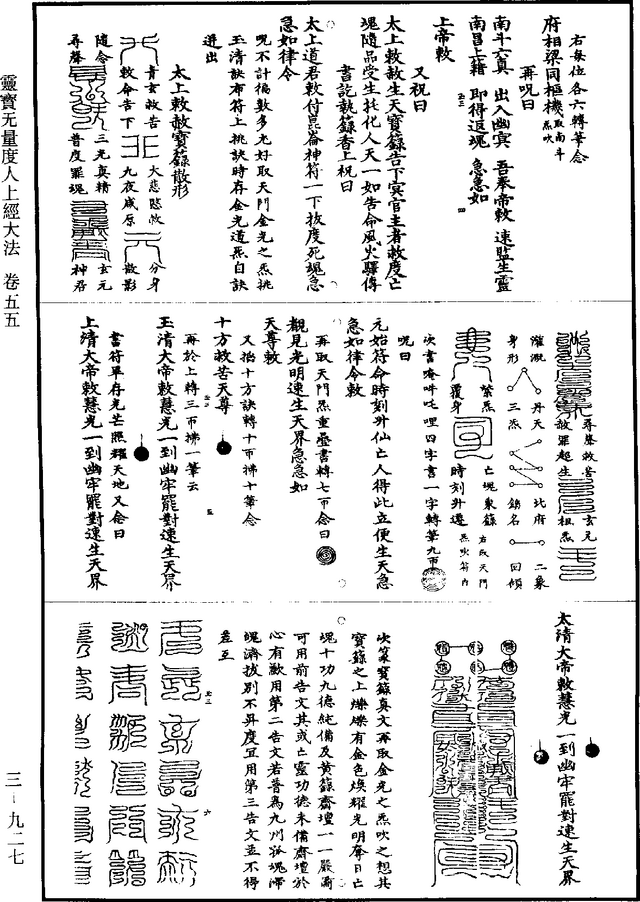 靈寶无量度人上經大法　卷五五
三－九二七
右每位各六轉筆念
府相梁同樞機取南斗炁吹
再呪曰
南斗六真　出入幽冥　吾奉帝敕　速監生靈
南昌上籍　即得返魂　急急如
上帝敕
又祝曰
太上敕赦生天寶籙告下冥官主者赦度亡
魂隨品受生托化人天一如告命風火驛傳
書訖執籙香上祝曰
太上道君敕付崑崙神符一下拔度死魂急
急如律令
呪不計徧數多尤好取天門金光之炁挑
玉清訣布符上挑訣時存金光道炁自訣
迸出
太上敕赦寶籙散形
青玄救告　大慈愍救　分身
敕命告下　九夜咸原　散影
隨念　三光真精　玄元
尋聲　普度罪魂　神君
尋聲救苦　玄元
赦罪超生　祖炁
灌溉　丹天　北府　二象
身形　三炁　錦名　回傾
紫炁　亡魂東籙　右取天門
覆身　時刻升遷　炁吹符內
次書唵吽吒唎四字書一字轉筆九帀
呪曰
元始符命時刻升仙亡人得此立便生天急
急如律令敕
再取天門炁重疊書轉七帀念曰
覩見光明速生天界急急如
天尊敕
又掐十方訣轉十帀拂十筆念
十方救苦天尊
再於上轉三帀拂一筆云
玉清大帝敕慧光一到幽牢罷對速生天界
書符畢存光芒照耀天地又念曰
上清大帝敕慧光一到幽牢罷對速生天界
太清大帝敕慧光一到幽牢罷對速生天界
次篆寶籙真文再取金光之炁吹之想其
寶籙之上爍爍有金色煥耀光明奪日亡
魂十功九德純備及黃籙齋壇一一嚴肅
可用前告文其或亡靈功德未備齋壇於
心有歉用第二告文若普為九州孤魂滯
魄濟拔別不昇度宜用第三告文並不得
差互